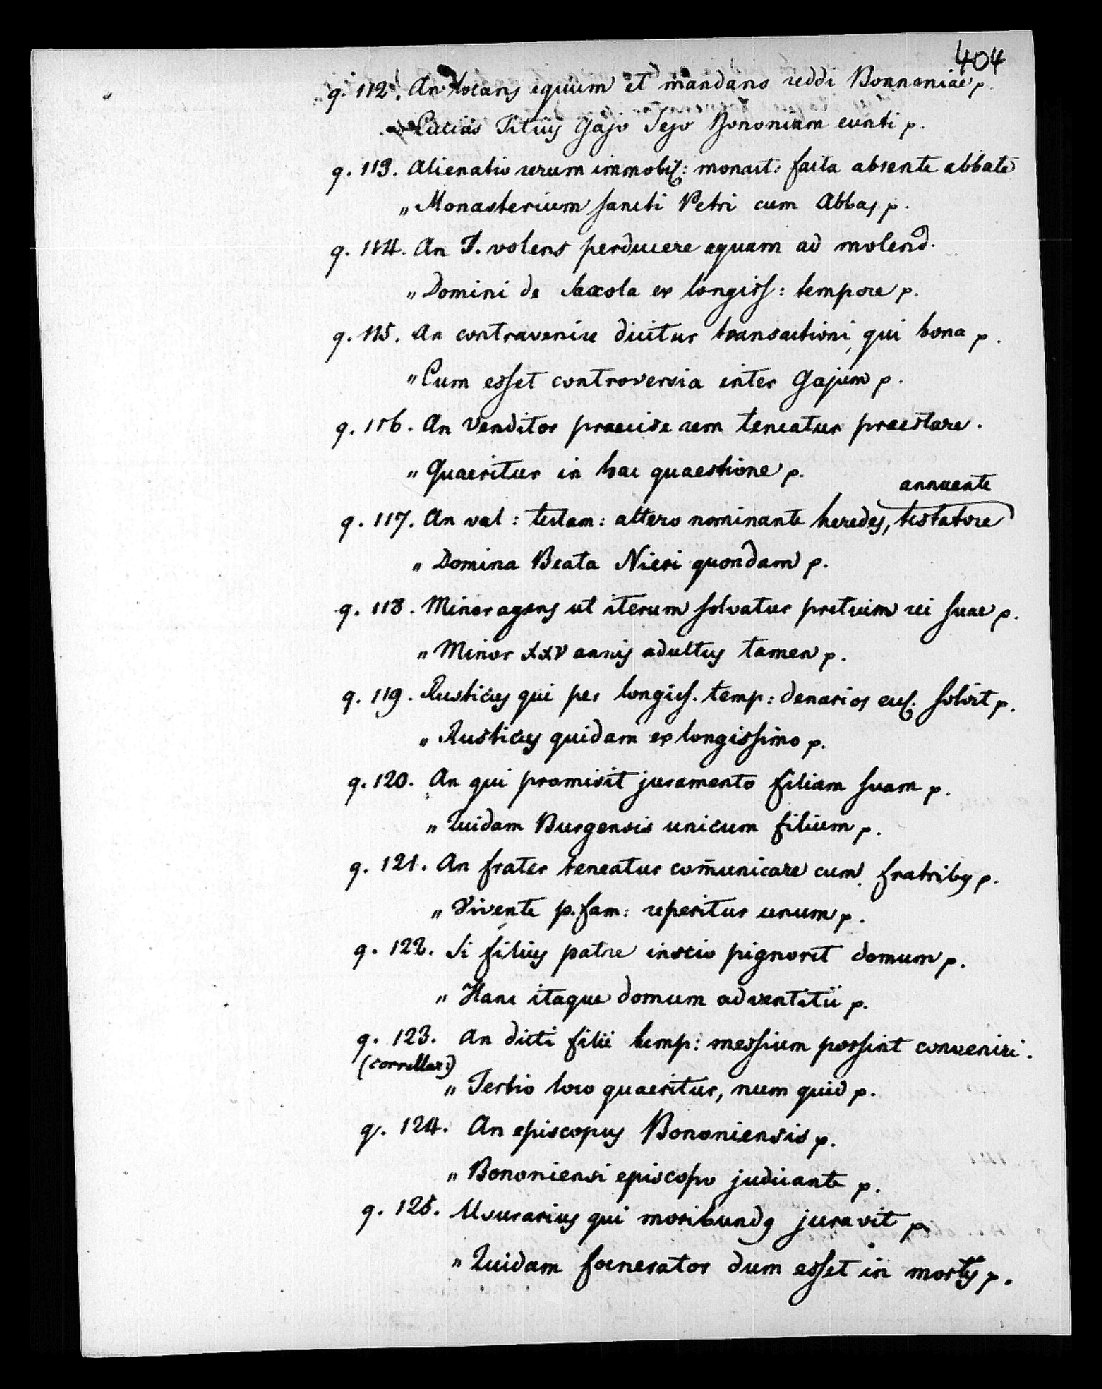 404
q. 112. An locans equum et mandans reddi Bonnoniae p.
Lucius Titius Gajo Sejo Bononiam eunti p.
q. 113. Alienatio rerum immobil: monast: facta absente abbate
„ Monasterium sancti Petri cum Abbas p.
q. 114. An T. volens perducere aquam ad molend.
„ Domini de ex longiss: tempore p.
q. 115. An contravenire dicitur transactioni, qui bona p.
„ Cum esset controversia inter Gajum p.
q. 116. An Venditor praecise rem teneatur praestare.
„ Quaeritur in hac quaestione p.
annuente
q. 117. An val: testam: altero nominante heredes, testatore
„ Domina Beata Nieri quondam p.
q. 118. Minor agens ut iterum solvatur pretium rei suae p.
„ Minor XXV annis adultus tamen p.
q. 119. Rusticus qui per longiss. temp: denarios eccl. solvit p.
„ Rusticus quidam ex longissimo p.
q. 120. An qui promisit juramento filiam suam p.
„ Quidam Burgensis unicum filium p.
q. 121. An frater teneatur com̄unicare cum fratribus p.
„ Vivente p. fam: reperitur unum p.
q. 122. Si filius patre inscio pignorit domum p.
„ Hanc itaque domum adventitii p.
q. 123. An dicti filii temp: messium possint conveniri.
(correllar:)
„ Tertio loco quaeritur, num quid p.
q. 124. An episcopus Bononiensis p.
„ Bononiensi episcopo judicante p.
q. 125. Usurarius qui moribundus juravit p
„ Quidam foenerator dum esset in mortis p.